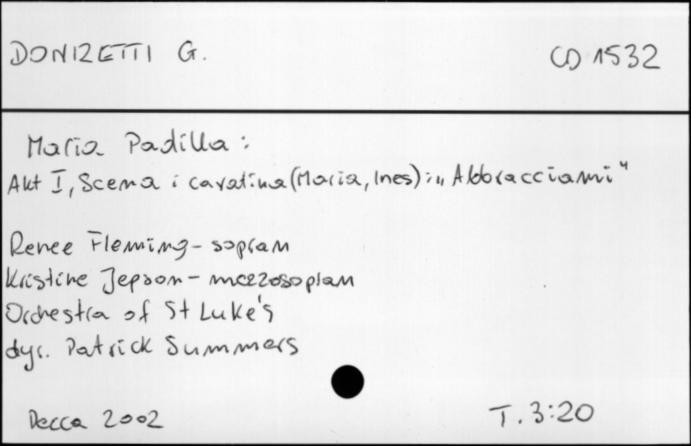 DONIZETTI G.
CD 1532
Maria Padilla:
Akt I, Scena i cavatina (Maria, Ines): „Abbracciami"
Renee Fleming - sopran
Kristine Jepson - mezzosopran
Orchestra of St Luke's
dyr. Patrick Summers
Decca 2002
T. 3:20